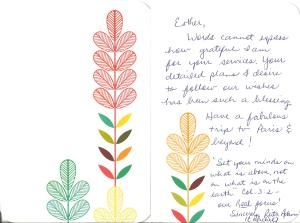 Esther,
Words cannot express
how grateful I am
for your services. Your
detailed plans & desire
to follow our wishes
has been such a blessing.
Have a fabulous
trip to Paris &
beyond!
"Set your minds on
what is above, not
on what is on the
earth" Col. 3:2 -
our Real focus!
Sincerely,